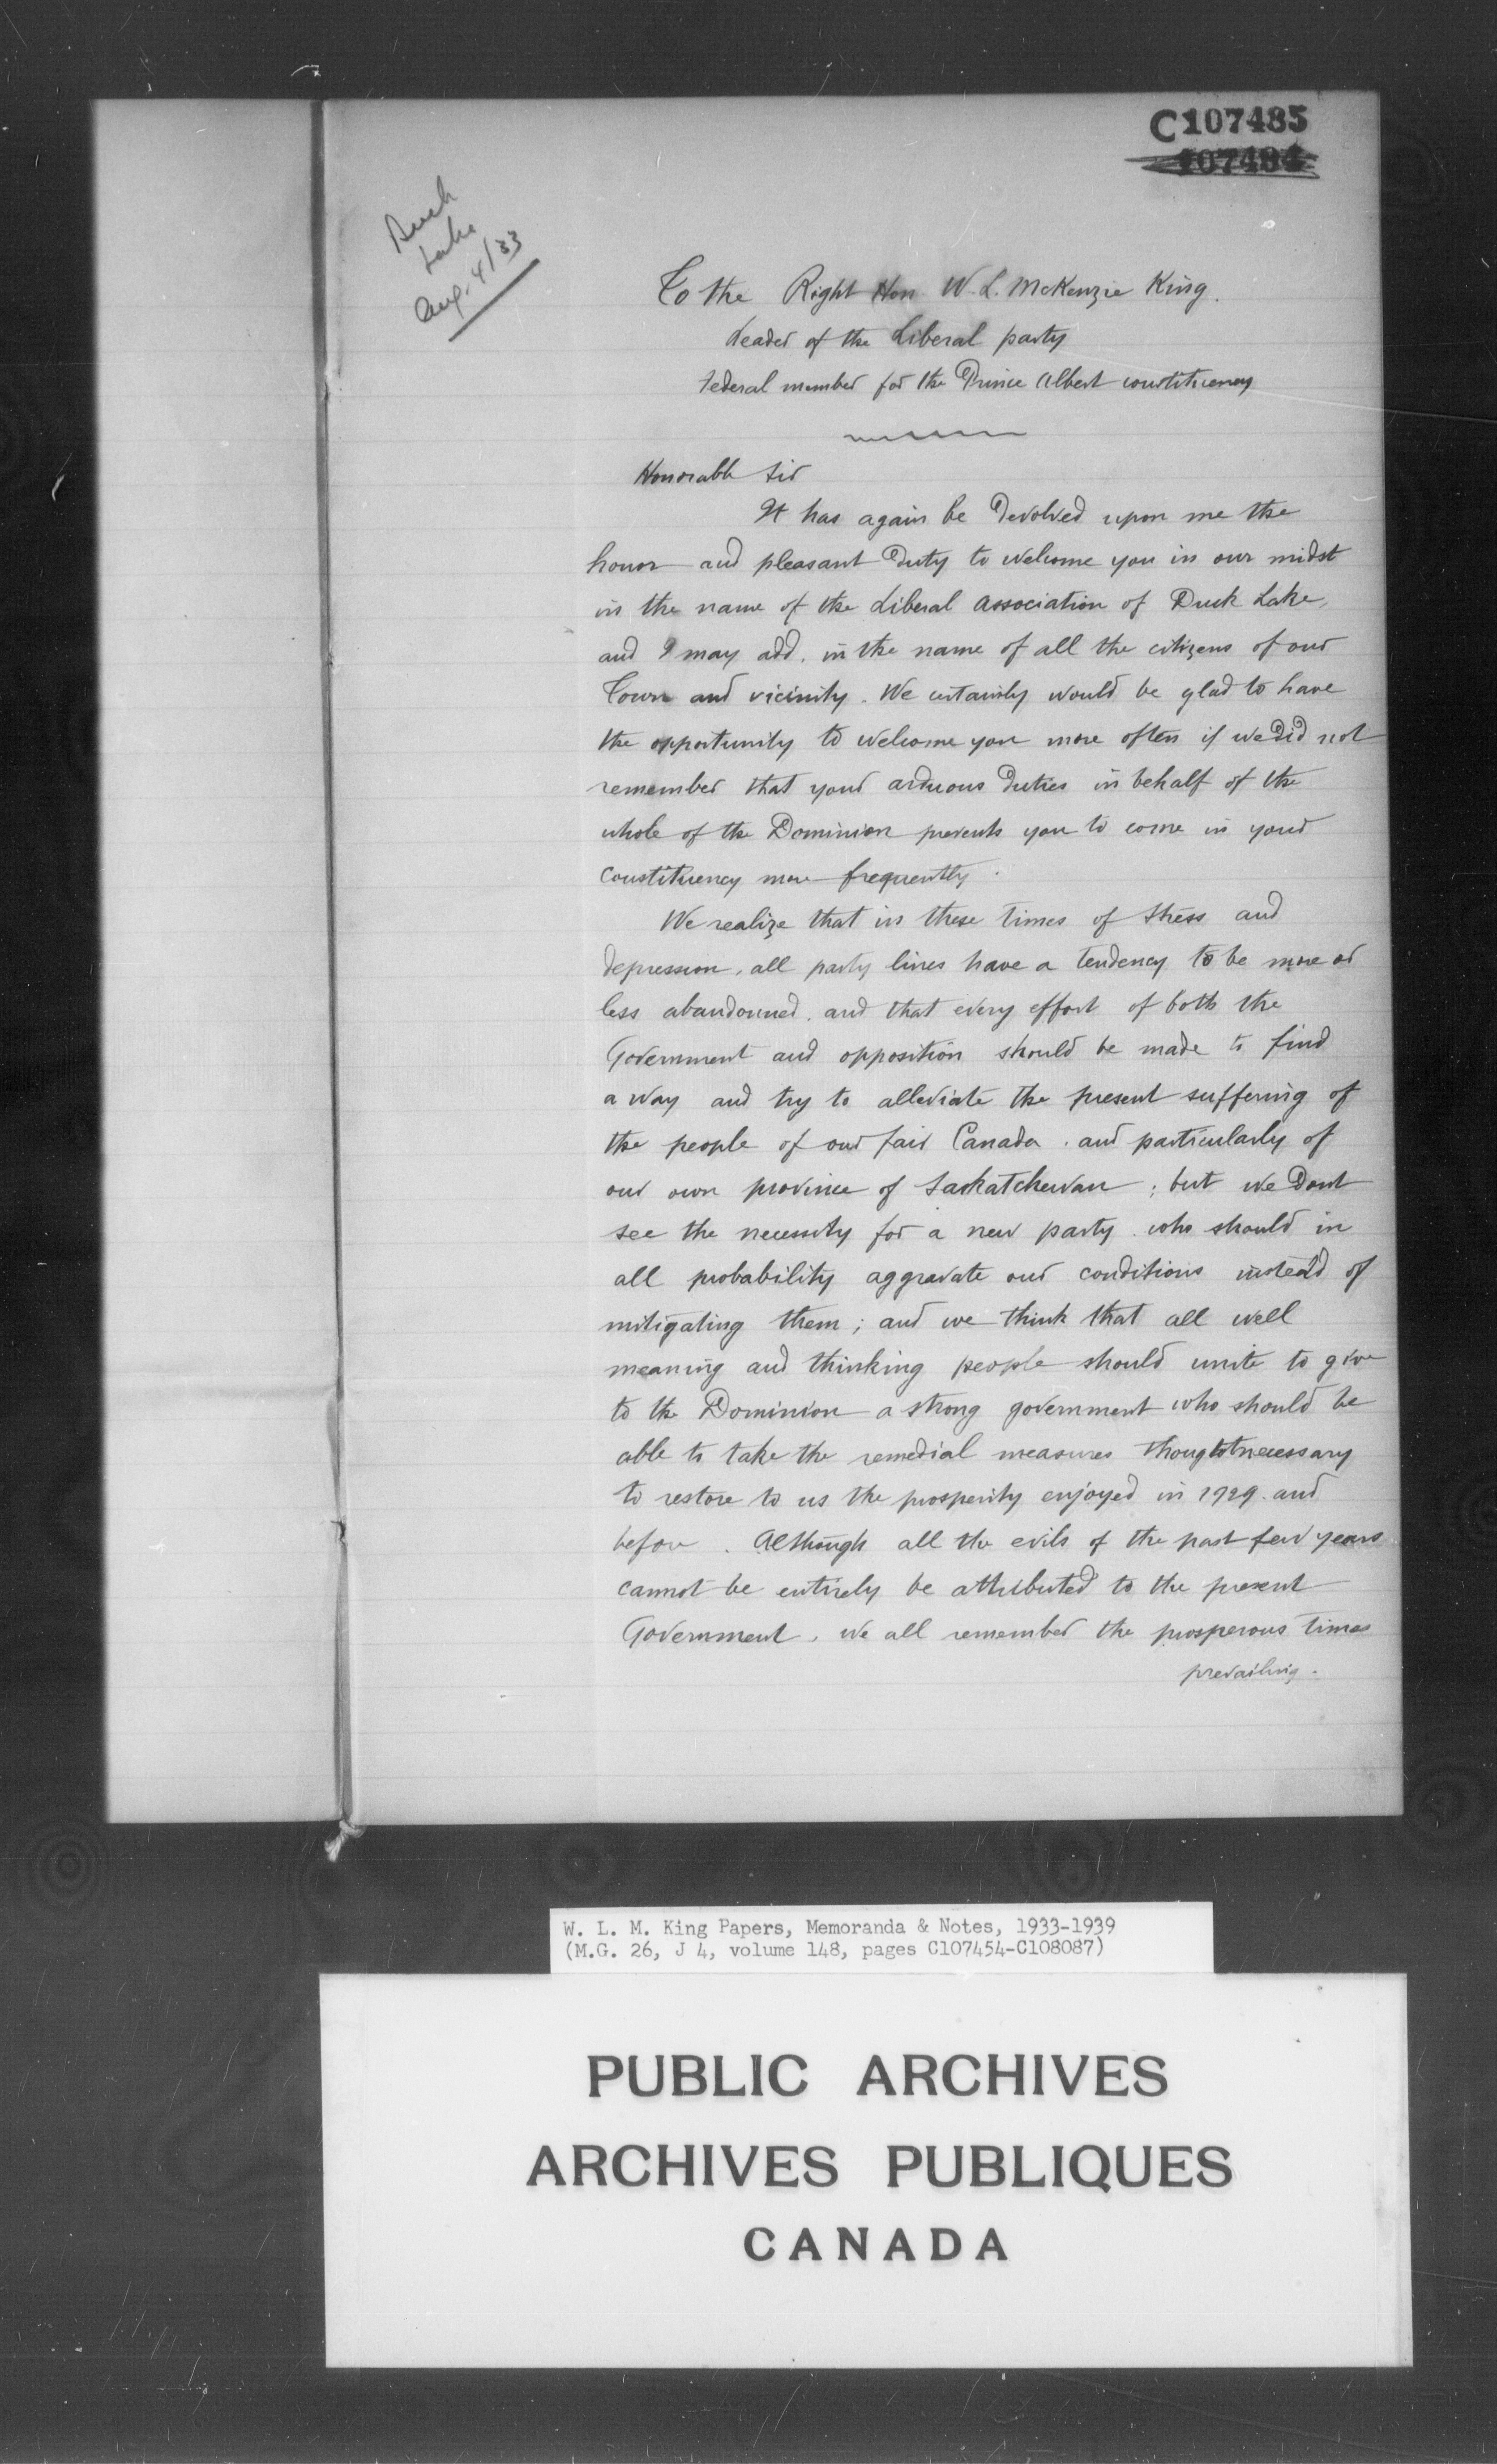 C107485
107484
Duck
Lake
Aug. 4/33
To the Right Hon. W. L. McKenzie King.
Leader of the Liberal party
Federal member for the Prince Albert constituency
Honorable Sir
It has again be devolved upon me the
honor and pleasant duty to welcome you in our midst
in the name of the Liberal Association of Duck Lake,
and I may add, in the name of all the citizens of our
Town and vicinity. We certainly would be glad to have
the opportunity to welcome you more often if we did not
remember that your arduous duties in behalf of the
whole of the Dominion prevents you to come in your
constituency more frequently.
We realize that in these times of stress and
depression, all party lines have a tendency to be more or
less abandonned, and that every effort of both the
Government and opposition should be made to find
a way and try to alleviate the present suffering of
the people of our fair Canada, and particularly of
our own province of Saskatchewan; but we dont
see the necessity for a new party who should in
all probability aggravate our conditions instead of
mitigating them; and we think that all well
meaning and thinking people should unite to give
to the Dominion a strong government who should be
able to take the remedial measures thought necessary
to restore to us the prosperity enjoyed in 1929 and
before. Although all the evils of the past few years
cannot be entirely be attributed to the present
Government, we all remember the prosperous times
prevailing.
W. L. M. King Papers, Memoranda & Notes, 1933-1939
(M.G. 26, J 4, volume 148, pages C107454-C108087)
PUBLIC ARCHIVES
ARCHIVES PUBLIQUES
CANADA